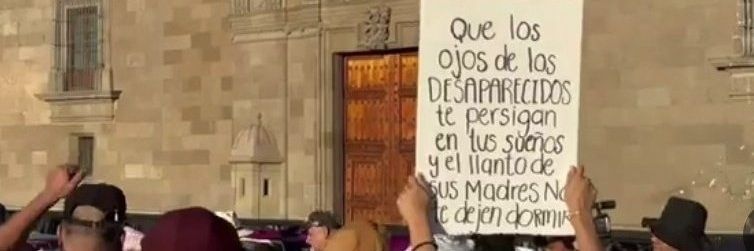 Que los
ojos de los
DESAPARECIDOS
te persigan
en tus sueños
y el llanto de
sus Madres No
te dejen dormir